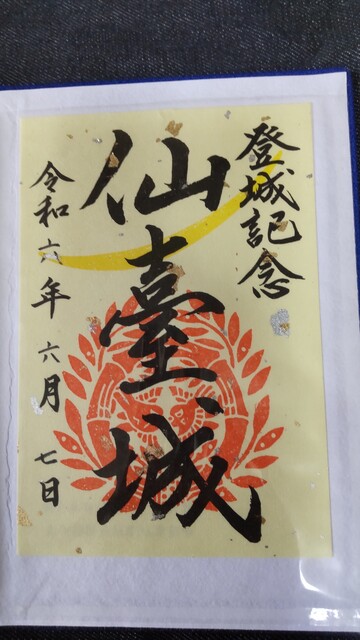 登城記念
仙臺城
令和六年六月七日